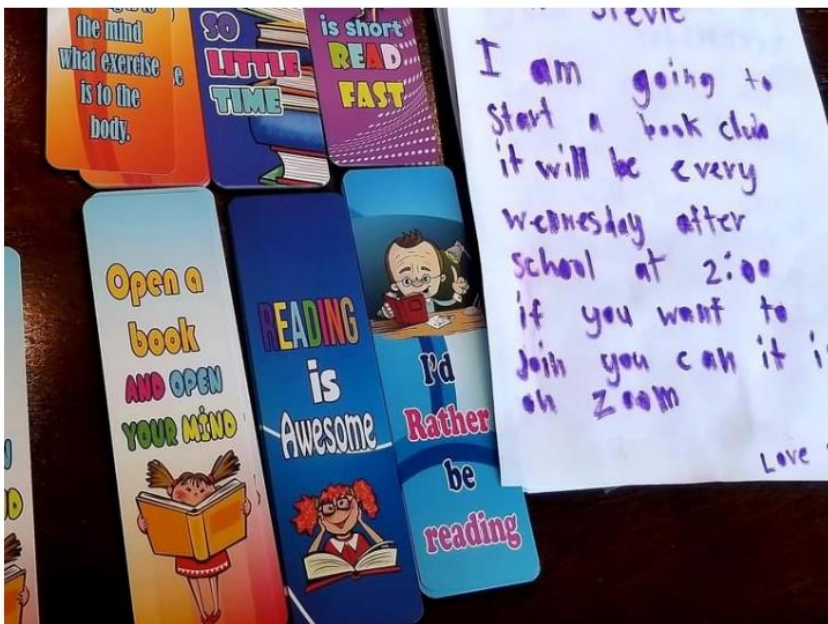 the mind
what exercise
is to the
body.
e
SO
LITTLE
TIME
is short
READ
FAST
Open a
book
AND OPEN
YOUR MIND
READING
is
Awesome
I'd
Rather
be
reading
Stevie
I am going to
start a book club
it will be every
wednesday after
school at 2:00
if you want to
join you can it i
on zoom
Love